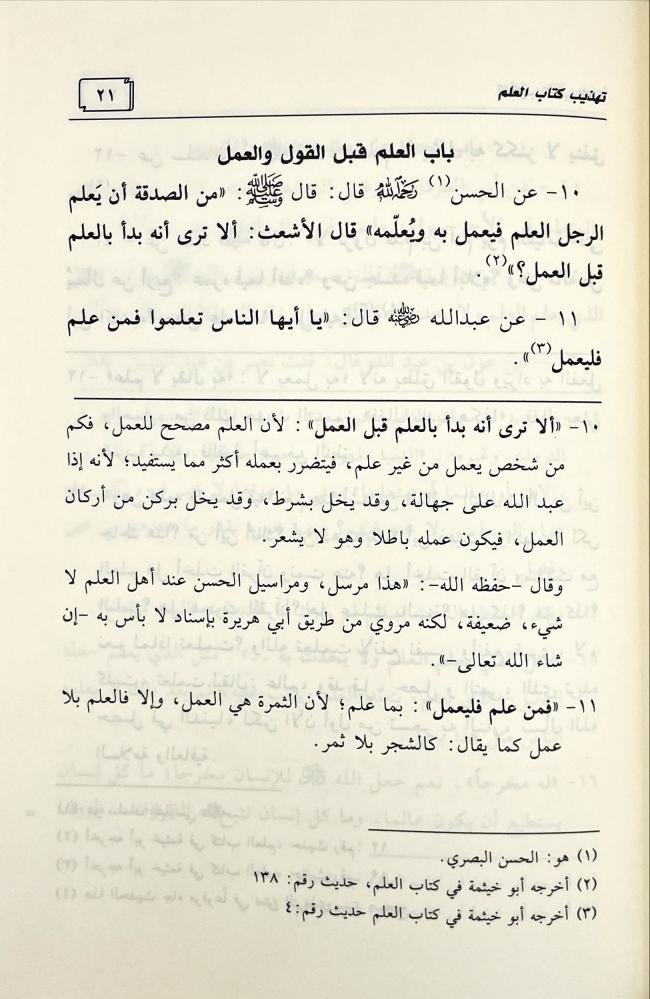 تهذيب كتاب العلم
٢١
باب العلم قبل القول والعمل
١٠- عن الحسن(١) رحمه الله قال: قال ﷺ: «من الصدقة أن يَعلم
الرجل العلم فيعمل به ويُعلّمه» قال الأشعث: ألا ترى أنه بدأ بالعلم
قبل العمل؟»(٢).
١١ - عن عبدالله رضي الله عنه قال: «يا أيها الناس تعلموا فمن علم
فليعمل(٣)».
١٠- «ألا ترى أنه بدأ بالعلم قبل العمل»: لأن العلم مصحح للعمل، فكم
من شخص يعمل من غير علم، فيتضرر بعمله أكثر مما يستفيد؛ لأنه إذا
عبد الله على جهالة، وقد يخل بشرط، وقد يخل بركن من أركان
العمل، فيكون عمله باطلا وهو لا يشعر.
وقال -حفظه الله-: «هذا مرسل، ومراسيل الحسن عند أهل العلم لا
شيء، ضعيفة، لكنه مروي من طريق أبي هريرة بإسناد لا بأس به -إن
شاء الله تعالى-».
١١- «فمن علم فليعمل»: بما علم؛ لأن الثمرة هي العمل، وإلا فالعلم بلا
عمل كما يقال: كالشجر بلا ثمر.
(١) هو: الحسن البصري.
(٢) أخرجه أبو خيثمة في كتاب العلم، حديث رقم: ١٣٨
(٣) أخرجه أبو خيثمة في كتاب العلم حديث رقم:٤